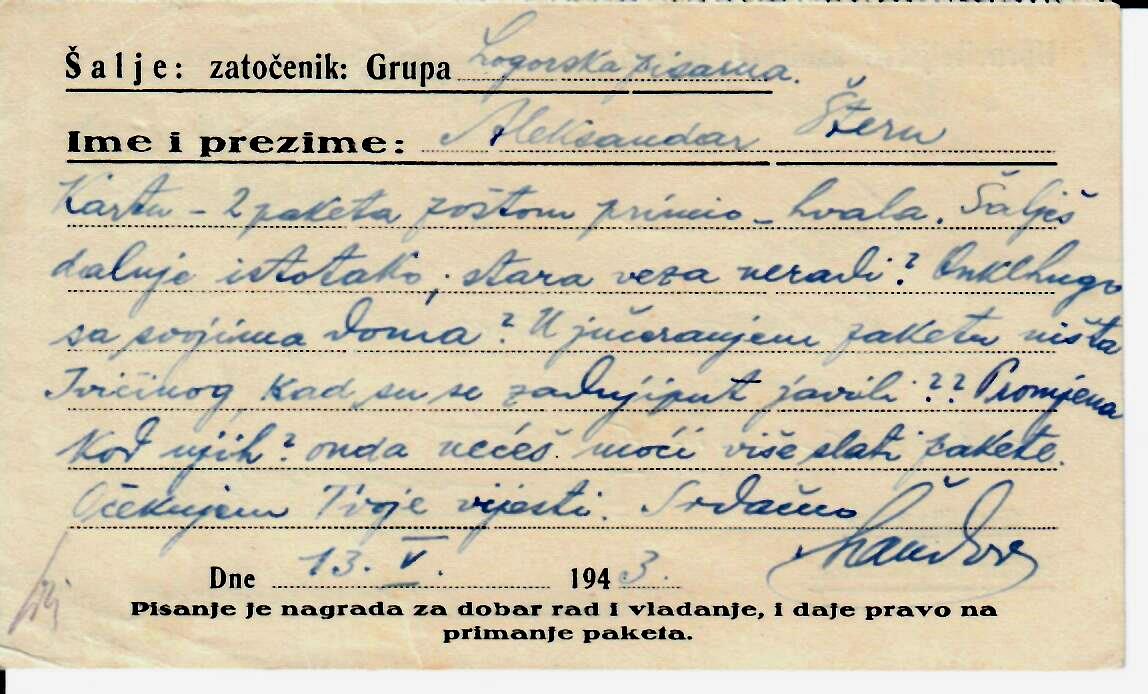 Šalje: zatočenik: Grupa Logorska pisarna.
Ime i prezime: Aleksandar Štern
Kartu – 2 paketa poštom primio – hvala. Šalješ
daluje istotako, stara veza neradi? Onkl Hugo
sa svojima doma? U jučeranjem paketu ništa
Ivičinog, kad su se zadnjiput javili?? Promjena
kod njih? onda nećeš moći više slati pakete.
Očekujem Tvoje vijesti. Srdačno
Dne 13. V. 1943.
Pisanje je nagrada za dobar rad i vladanje, i daje pravo na
primanje paketa.